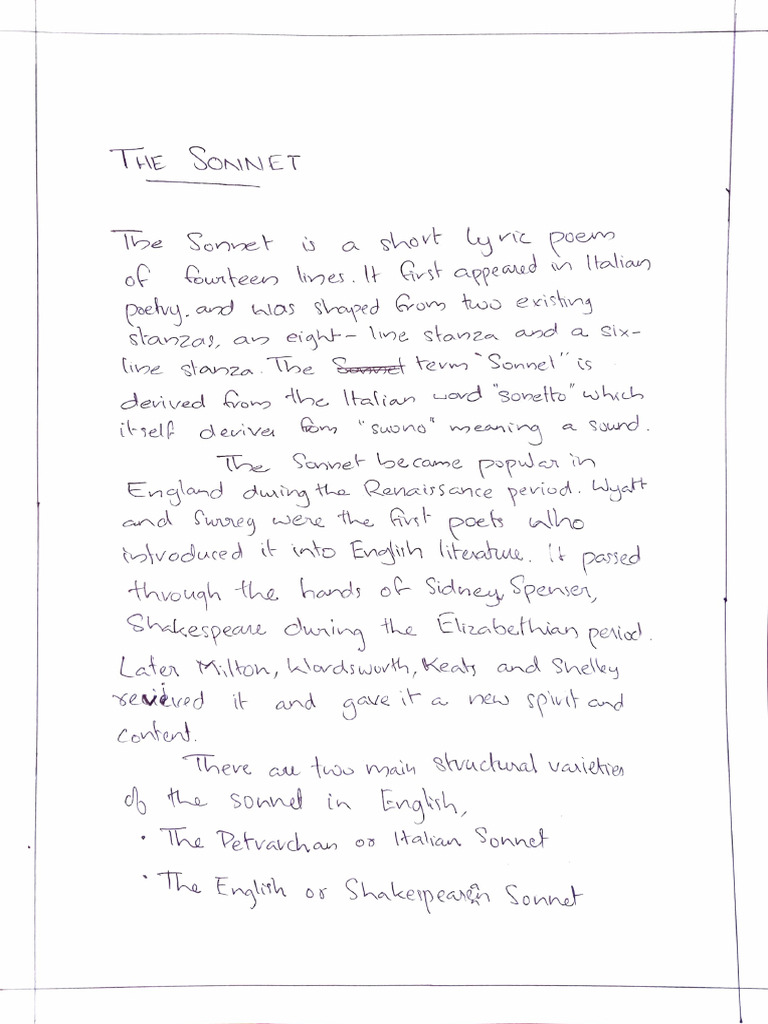 THE SONNET
The Sonnet is a short lyric poem
of fourteen lines. It first appeared in Italian
poetry. and was shaped from two existing
stanzas, an eight-line stanza and a six-
line stanza. The Sonnet term "Sonnet" is
derived from the Italian word "sonetto" which
itself derives from "suono" meaning a sound.
The Sonnet became popular in
England during the Renaissance period. Wyatt
and Surrey were the first poets who
introduced it into English literature. It passed
through the hands of Sidney, Spenser,
Shakespeare during the Elizabethian period.
Later Milton, Wordsworth, Keats and Shelley
revived it and gave it a new spirit and
content.
There are two main structural varieties
of the sonnet in English,
• The Petrarchan or Italian Sonnet
• The English or Shakespearean Sonnet